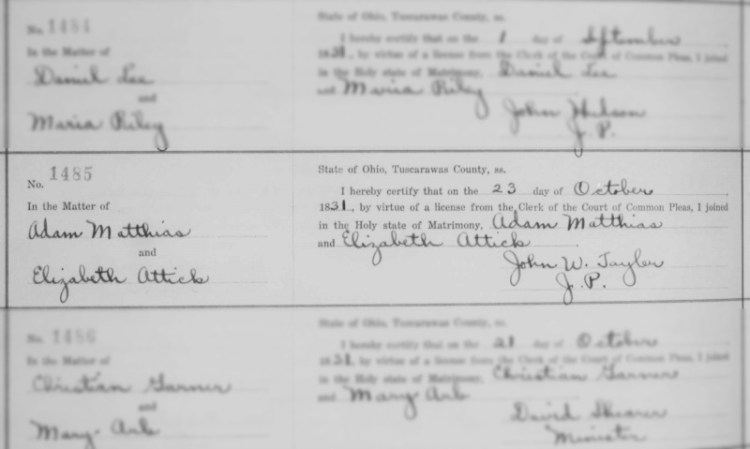 No. 1484
State of Ohio, Tuscarawas County, ss.
In the Matter of
I hereby certify that on the 1 day of September
1831, by virtue of a license from the Clerk of the Court of Common Pleas, I joined
Daniel Lee
in the Holy state of Matrimony, Daniel Lee
and
and Maria Riley
Maria Riley
John Hudson
J. P.
No. 1485
State of Ohio, Tuscarawas County, ss.
I hereby certify that on the 23 day of October
In the Matter of
1831, by virtue of a license from the Clerk of the Court of Common Pleas, I joined
Adam Matthias
in the Holy state of Matrimony, Adam Matthias
and
and Elizabeth Attick
Elizabeth Attick
John W. Tayler
J. P.
No. 1486
State of Ohio, Tuscarawas County, ss.
I hereby certify that on the 21 day of October
In the Matter of
1831, by virtue of a license from the Clerk of the Court of Common Pleas, I joined
Christian Garner
in the Holy state of Matrimony, Christian Garner
and
and Mary
Mary
David Shearer
Minister